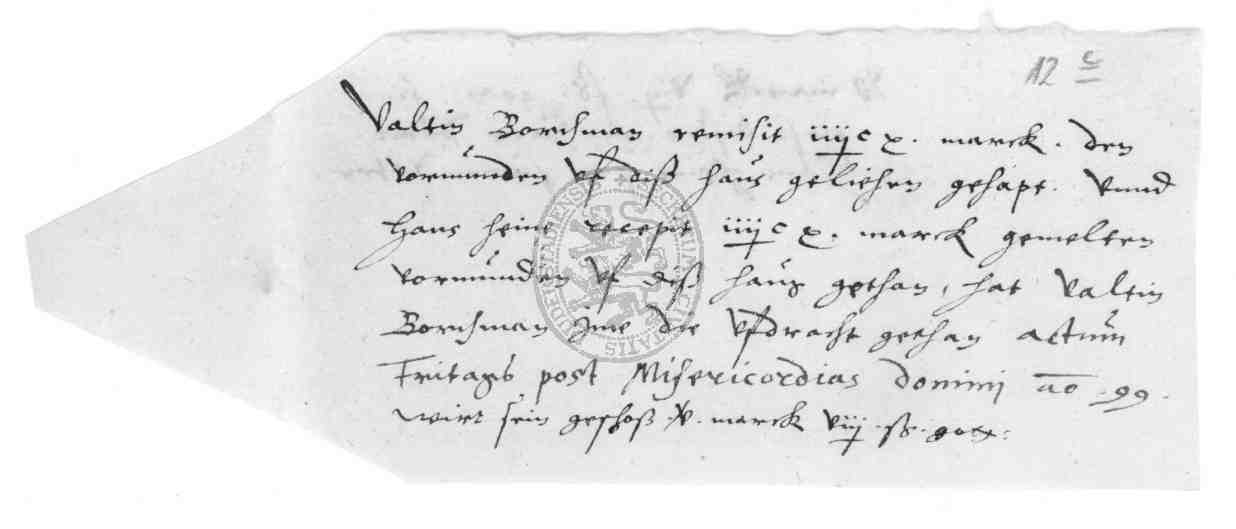 12 c
Valtin Borchman remisit iiijc x. marck. den
vormunden vf diß haus geliehen gehapt. Vnnd
Hans Heine recepit iiijc x. marck gemelten
vormunden vf diß haus gethan, hat Valtin
Borchman Ime die vfdracht gethan actum
Fritags post Misericordias domini ao .99.
wirt sein geschoß v. marck viij ß.